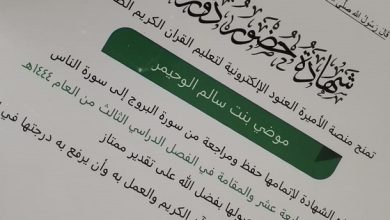 قال رسول الله صلى
شهادة حضور دورة
تمنح منصة الأميرة العنود الإلكترونية لتعليم القرآن الكريم
موضي بنت سالم الوحيمر
الشهادة لإتمامها حفظ ومراجعة من سورة البروج إلى سورة الناس
عشر والمقامة في الفصل الدراسي الثالث من العام ١٤٤٤هـ
بفضل الله على تقدير ممتاز
الكريم والعمل به وأن يرفع به درجتها في